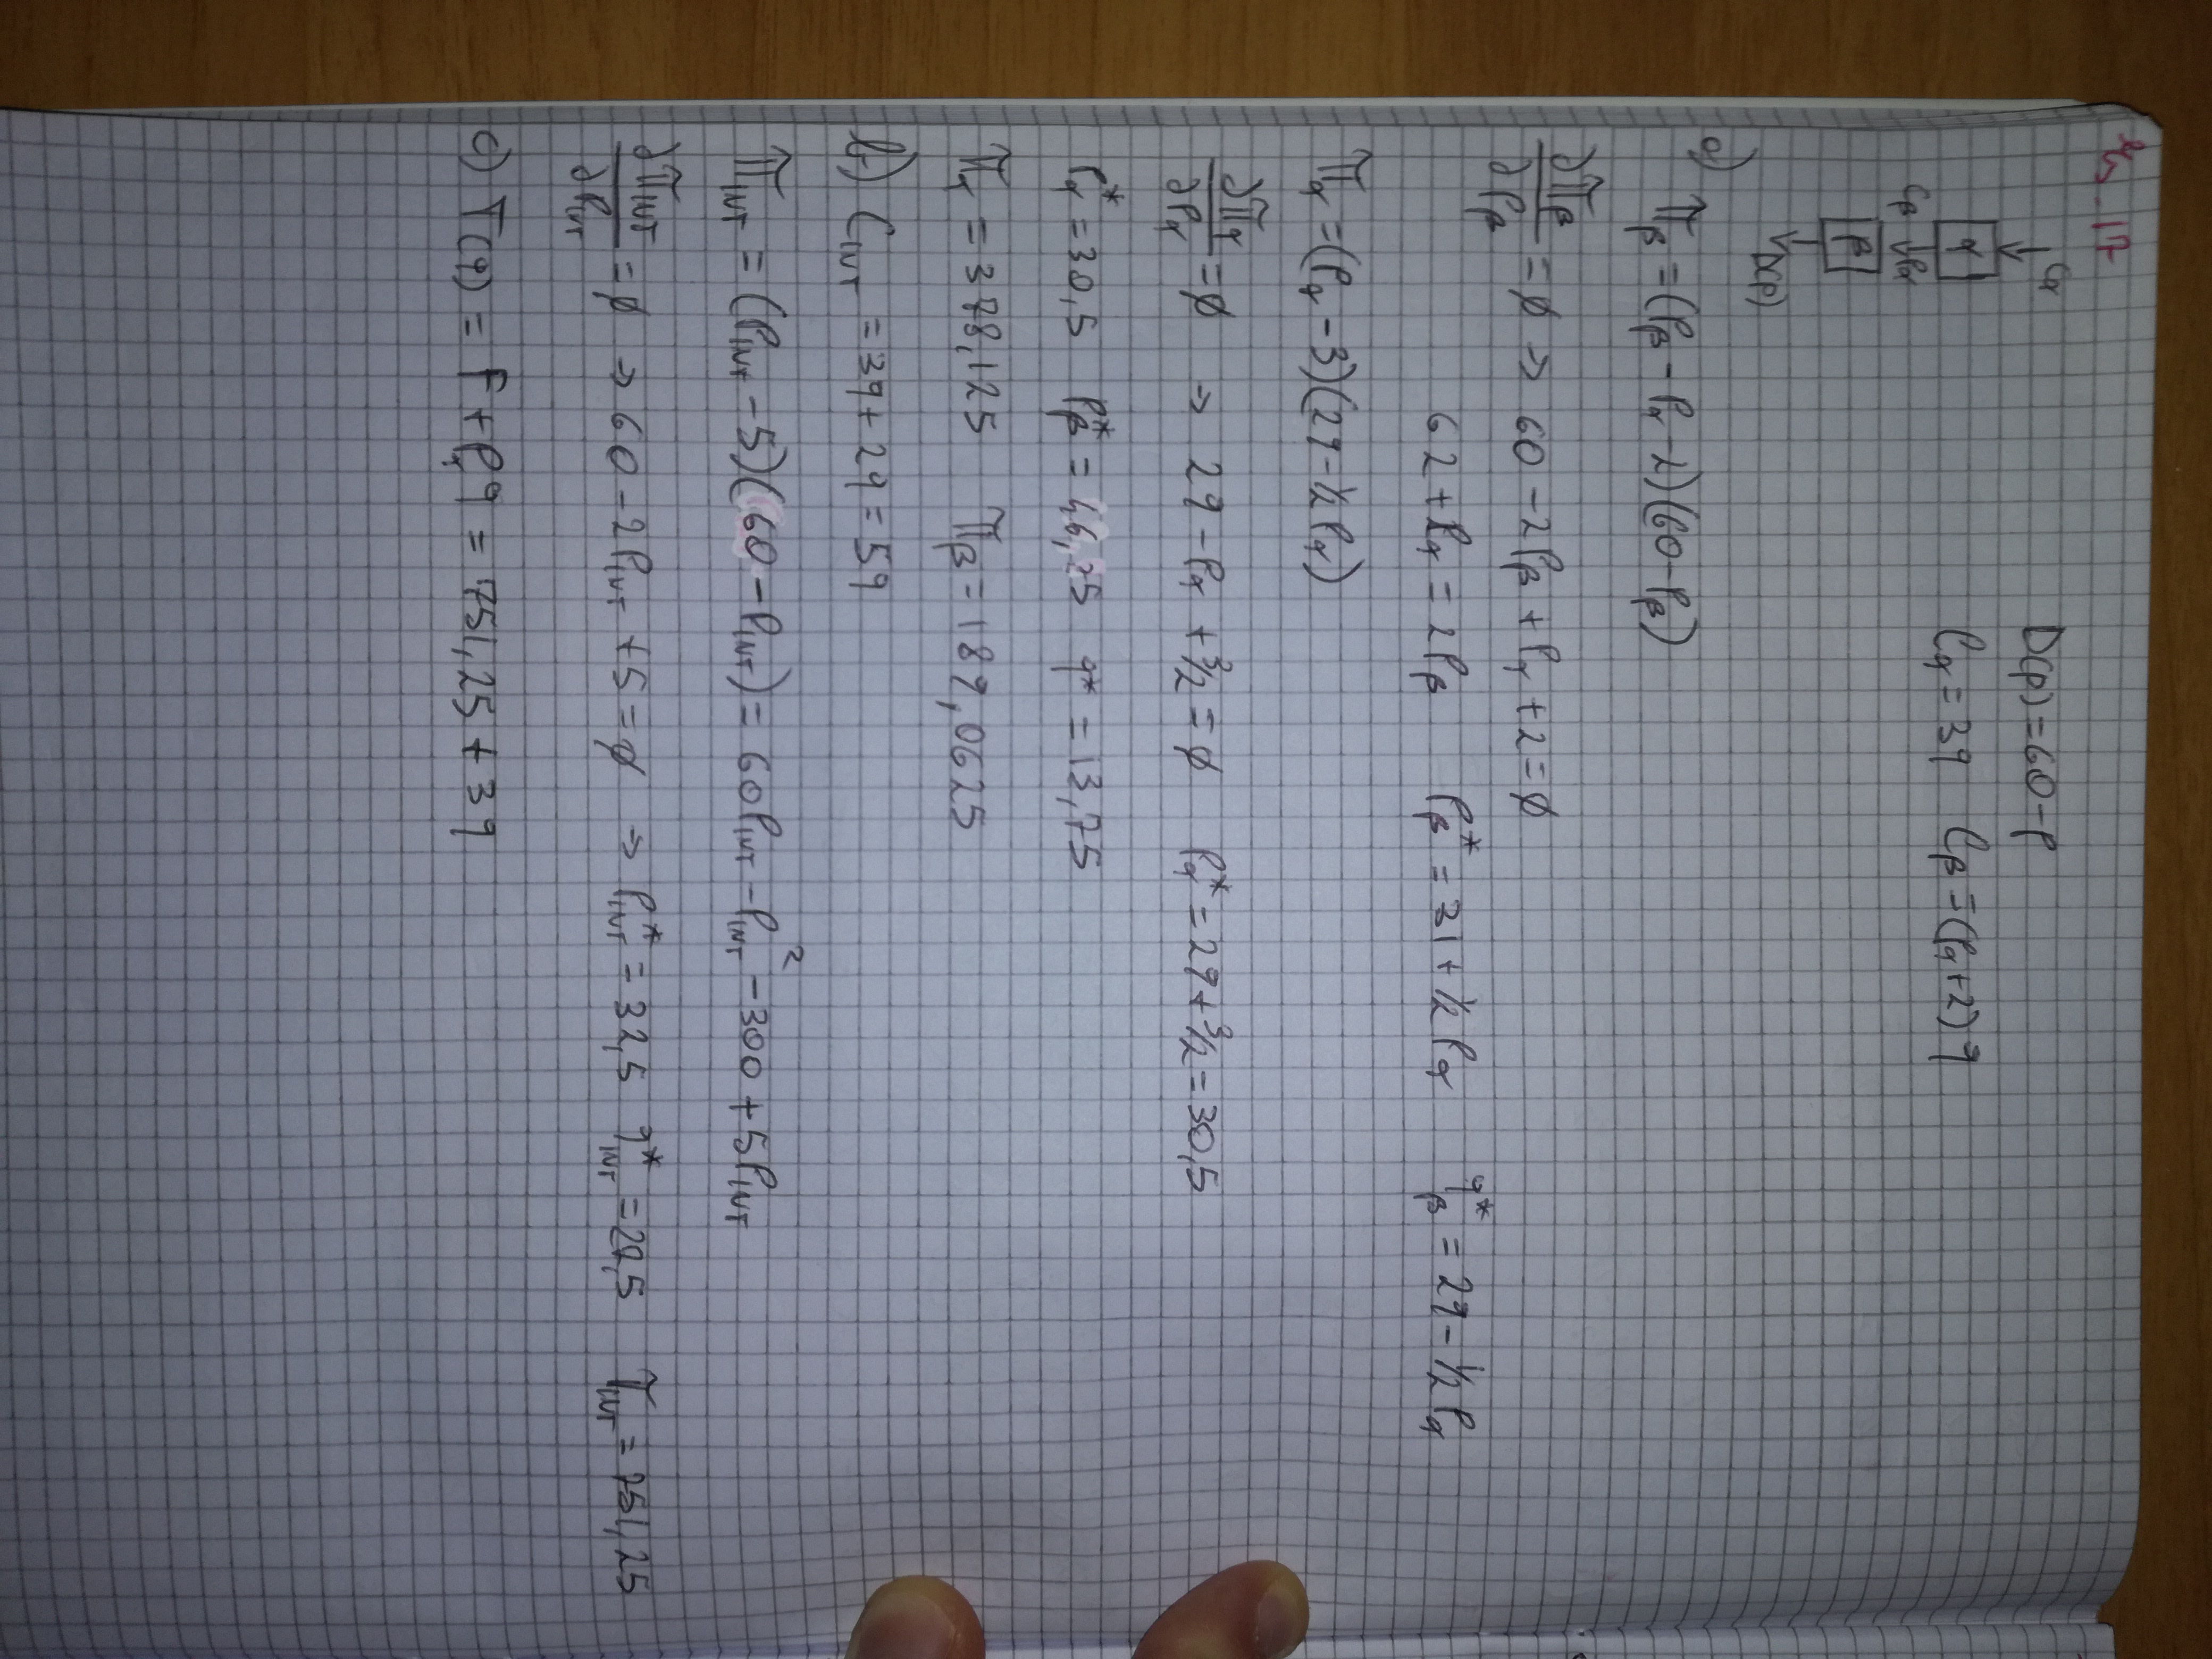 Es. 17
Cα
α
Cβ Pα
β
D(p)
D(p) = 60 - p
Cα = 3q Cβ = (Pα + 2) q
a)
πβ = (Pβ - Pα - 2)(60 - Pβ)
∂πβ/∂Pβ = ∅ → 60 - 2Pβ + Pα + 2 = ∅
62 + Pα = 2Pβ Pβ* = 31 + 1/2 Pα qβ* = 29 - 1/2 Pα
πα = (Pα - 3)(29 - 1/2 Pα)
∂πα/∂Pα = ∅ → 29 - Pα + 3/2 = ∅ Pα* = 29 + 3/2 = 30,5
Pα* = 30,5 Pβ* = 46,25 q* = 13,75
πα = 378,125 πβ = 189,0625
b) CINT = 3q + 2q = 5q
πINT = (PINT - 5)(60 - PINT) = 60PINT - PINT² - 300 + 5PINT
∂πINT/∂PINT = ∅ → 60 - 2PINT + 5 = ∅ → PINT* = 32,5 qINT* = 27,5 πINT = 751,25
c) T(q) = F + Pα q = 751,25 + 3q